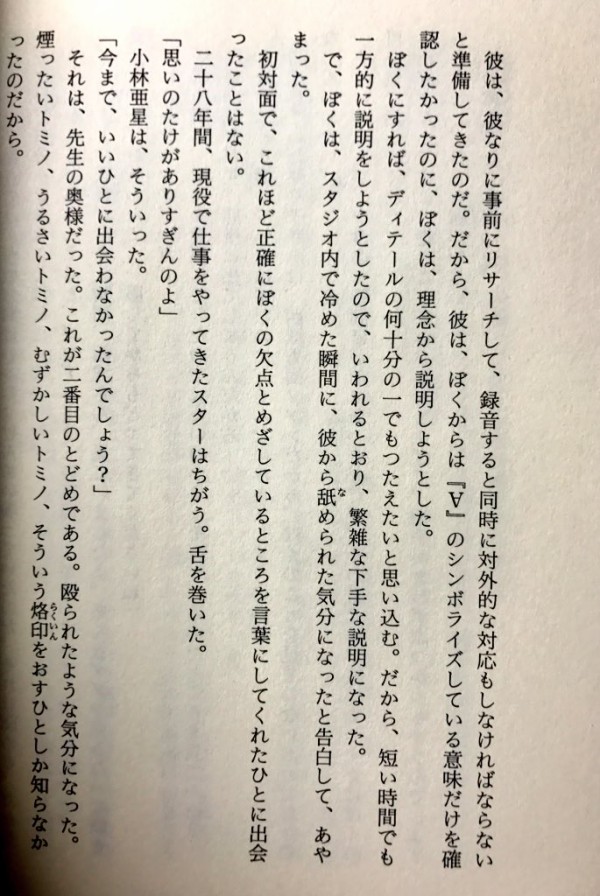 彼は、彼なりに事前にリサーチして、録音すると同時に対外的な対応もしなければならない
と準備してきたのだ。だから、彼は、ぼくからは『∀』のシンボライズしている意味だけを確
認したかったのに、ぼくは、理念から説明しようとした。
ぼくにすれば、ディテールの何十分の一でもつたえたいと思い込む。だから、短い時間でも
一方的に説明をしようとしたので、いわれるとおり、繁雑な下手な説明になった。
で、ぼくは、スタジオ内で冷めた瞬間に、彼から舐められた気分になったと告白して、あや
まった。
初対面で、これほど正確にぼくの欠点とめざしているところを言葉にしてくれたひとに出会
ったことはない。
二十八年間、現役で仕事をやってきたスターはちがう。舌を巻いた。
「思いのたけがありすぎんのよ」
小林亜星は、そういった。
「今まで、いいひとに出会わなかったんでしょう？」
それは、先生の奥様だった。これが二番目のとどめである。殴られたような気分になった。
煙ったいトミノ、うるさいトミノ、むずかしいトミノ、そういう烙印をおすひとしか知らなか
ったのだから。